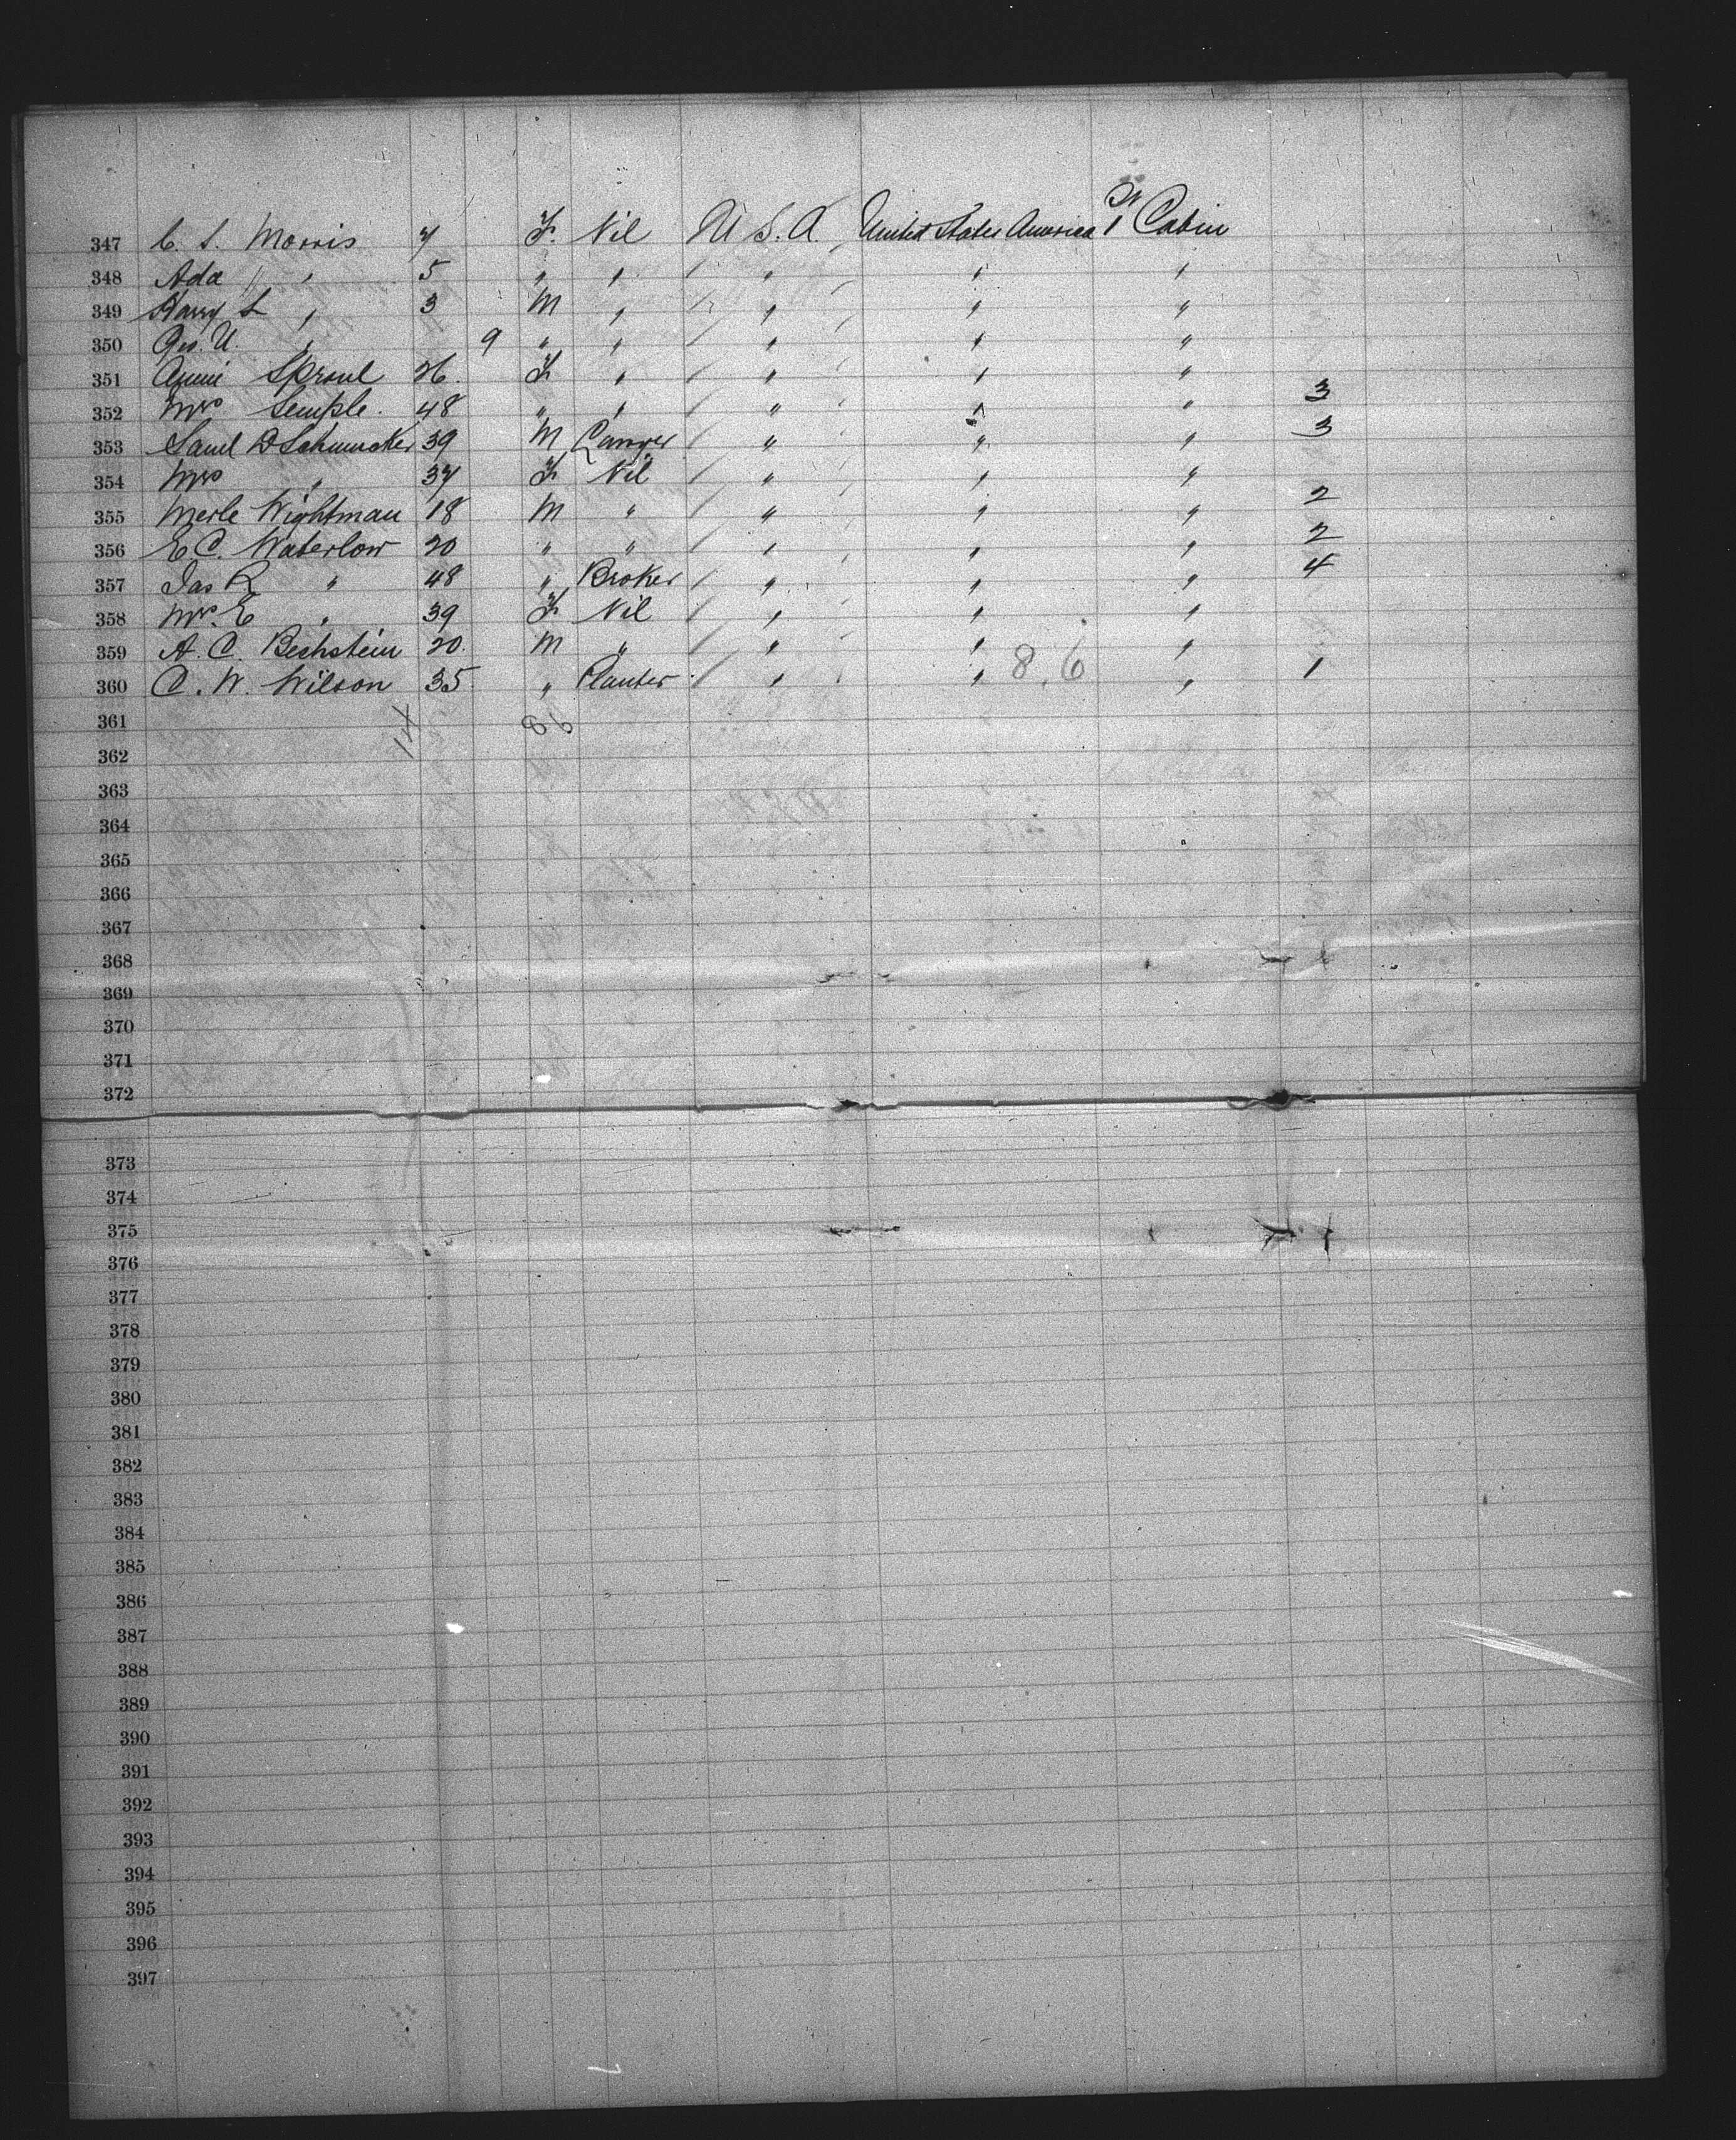 347 C. S. Morris 7 F. Nil U.S.A. United States America 1st Cabin
348 Ada " " 5 " " / " " "
349 Harry L " 3 M " " " "
350 Geo. U. " 9 " " / " " "
351 Annie Sproul 26. F " / " " "
352 Mrs Semple. 48 " " / " " " 3
353 Saml D Schumacker 39 M Lawyer / " " " 3
354 Mrs " 37 F Nil / " " "
355 Merle Wightman 18 M " / " " " 2
356 E C. Waterlow 20 " " / " " " 2
357 Jas R " 48 " Broker / " " " 4
358 Mrs. E " 39 F Nil / " " "
359 A. C. Bechstein 20. M " / " " "
360 C. W. Wilson 35 " Planter / " " 8.6 " 1
361 14 86
362
363
364
365
366
367
368
369
370
371
372
373
374
375
376
377
378
379
380
381
382
383
384
385
386
387
388
389
390
391
392
393
394
395
396
397